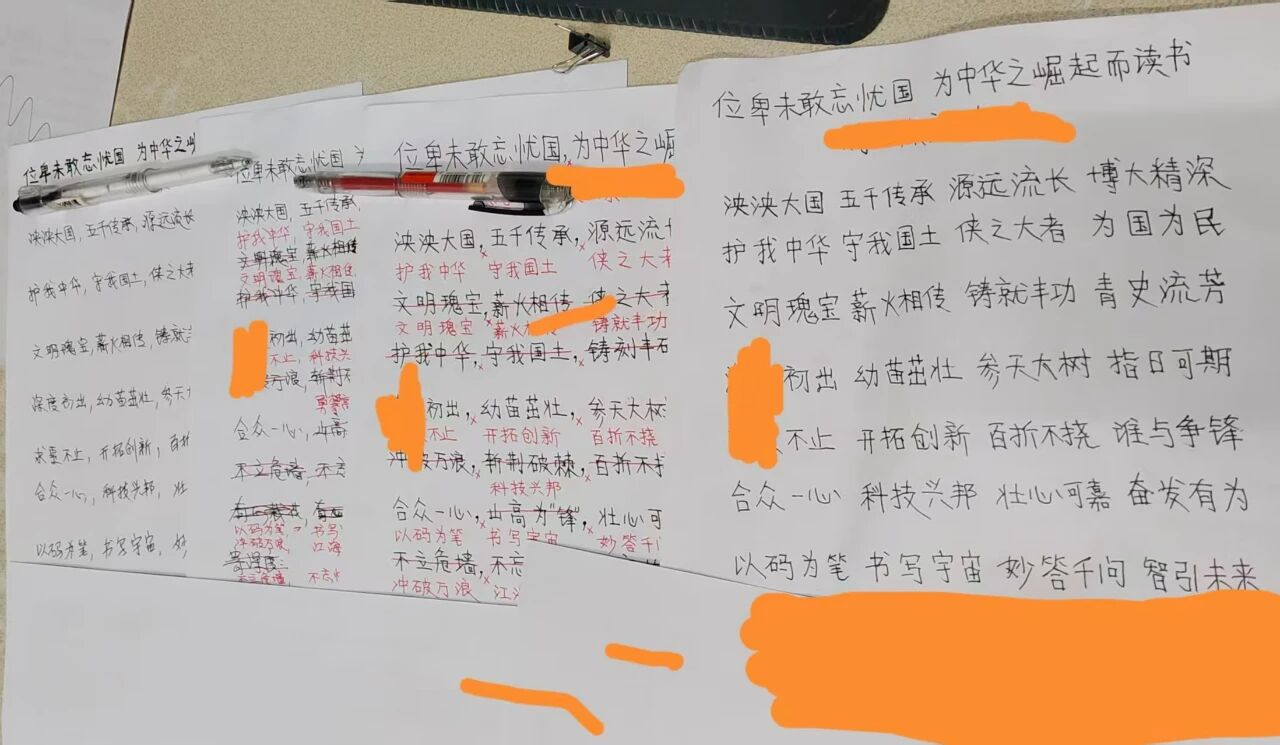 位卑未敢忘忧国 为中华之
泱泱大国,五千传承,源远流长
护我中华,守我国土,侠之大者
文明瑰宝,薪火相传,铸就
深度初出,幼苗茁壮,参天
求索不止,开拓创新,百折
合众一心,科技兴邦,壮
以码为笔,书写宇宙,妙
位卑未敢忘忧国
泱泱大国,五千传承,
护我中华 守我国土
文明瑰宝,薪火相传
文明瑰宝,薪火相传
护我中华,守我国
初出,幼苗茁
不止,科技兴
万浪,斩荆不
合众一心,山高
不立危墙,不忘
以码为笔,书写
冲破万浪,江海
不立危墙 不忘
位卑未敢忘忧国,为中华之崛
泱泱大国,五千传承,源远流长
护我中华 守我国土 侠之大者
文明瑰宝,薪火相传 侠之大者
文明瑰宝 薪火相传 铸就丰功
护我中华,守我国土,铸刻丰石
初出,幼苗茁壮,参天大树
不止 开拓创新 百折不挠
冲破万浪,斩荆破棘,百折不
科技兴邦
合众一心,山高为"锋",壮心可
以码为笔 书写宇宙 妙答千
不立危墙,不忘
冲破万浪 江
位卑未敢忘忧国 为中华之崛起而读书
泱泱大国 五千传承 源远流长 博大精深
护我中华 守我国土 侠之大者 为国为民
文明瑰宝 薪火相传 铸就丰功 青史流芳
初出 幼苗茁壮 参天大树 指日可期
不止 开拓创新 百折不挠 谁与争锋
合众一心 科技兴邦 壮心可嘉 奋发有为
以码为笔 书写宇宙 妙答千问 智引未来